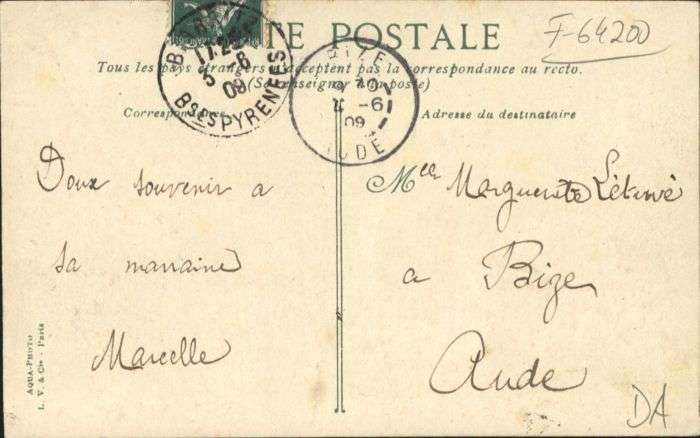 TE POSTALE
F-64200
Tous les pays étrangers n'acceptent pas la correspondance au recto.
(Se renseigner à la poste)
Correspondance
Adresse du destinataire
B
11 25
5 -6
09
Bses PYRENEES
BIZE
-6
09
AUDE
Doux souvenir a
sa marraine
Marcelle
Melle Marguerite
a Bize
Aude
AQUA-PHOTO
L. V. & Cie - Paris
DA